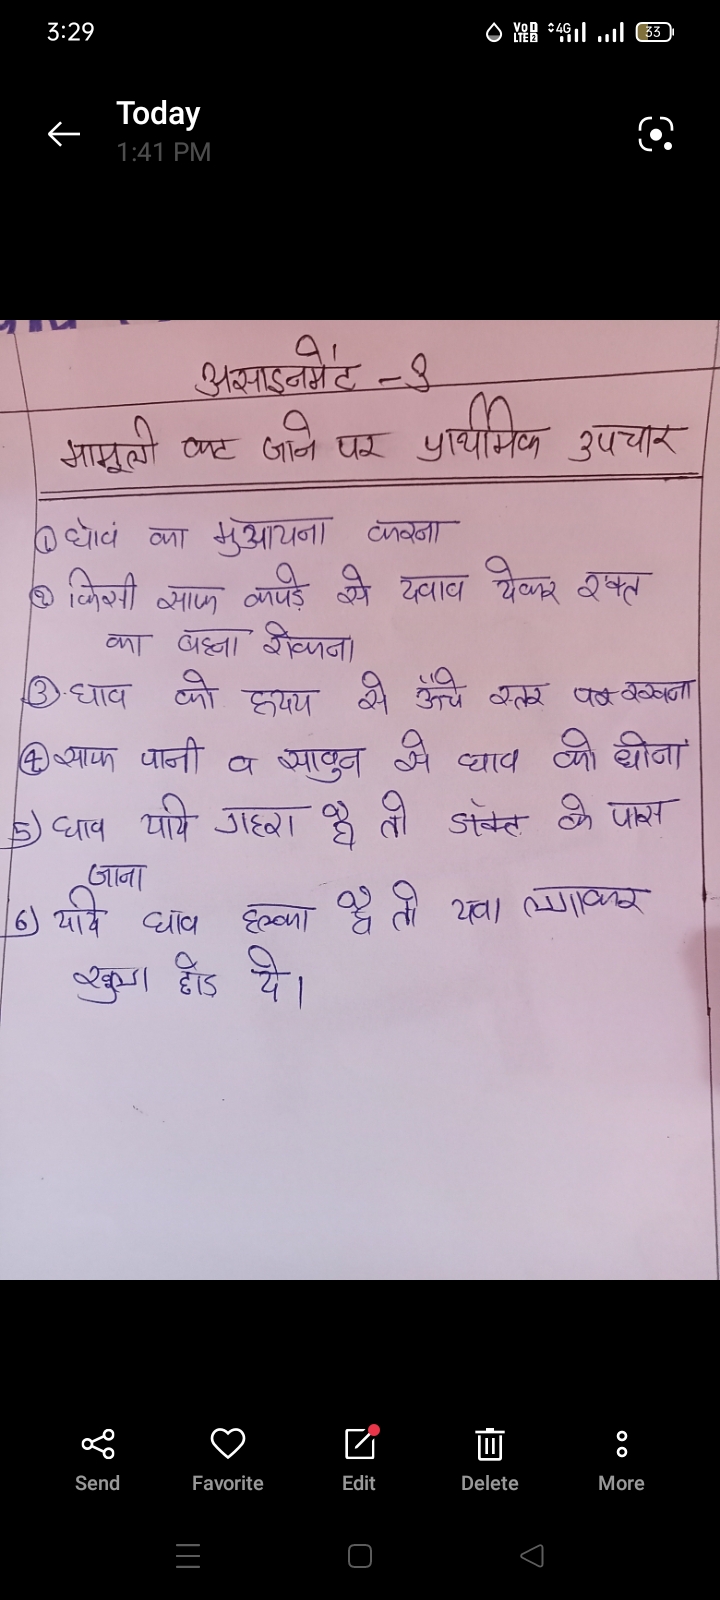 3:29
VoD LTE2 4G 33
Today
1:41 PM
असाइनमेंट - 3
मामूली कट जाने पर प्राथमिक उपचार
① घाव का मुआयना करना
② किसी साफ कपड़े से दवाव देकर रक्त
का बहना रोकना
③ घाव को हृदय से ऊँचे स्तर पर रखना
④ साफ पानी व साबुन से घाव को धोना
5) घाव यदि गहरा है तो डॉक्ट के पास
जाना
6) यदि घाव हल्का है तो दवा लगाकर
खुला छोड दे।
Send Favorite Edit Delete More